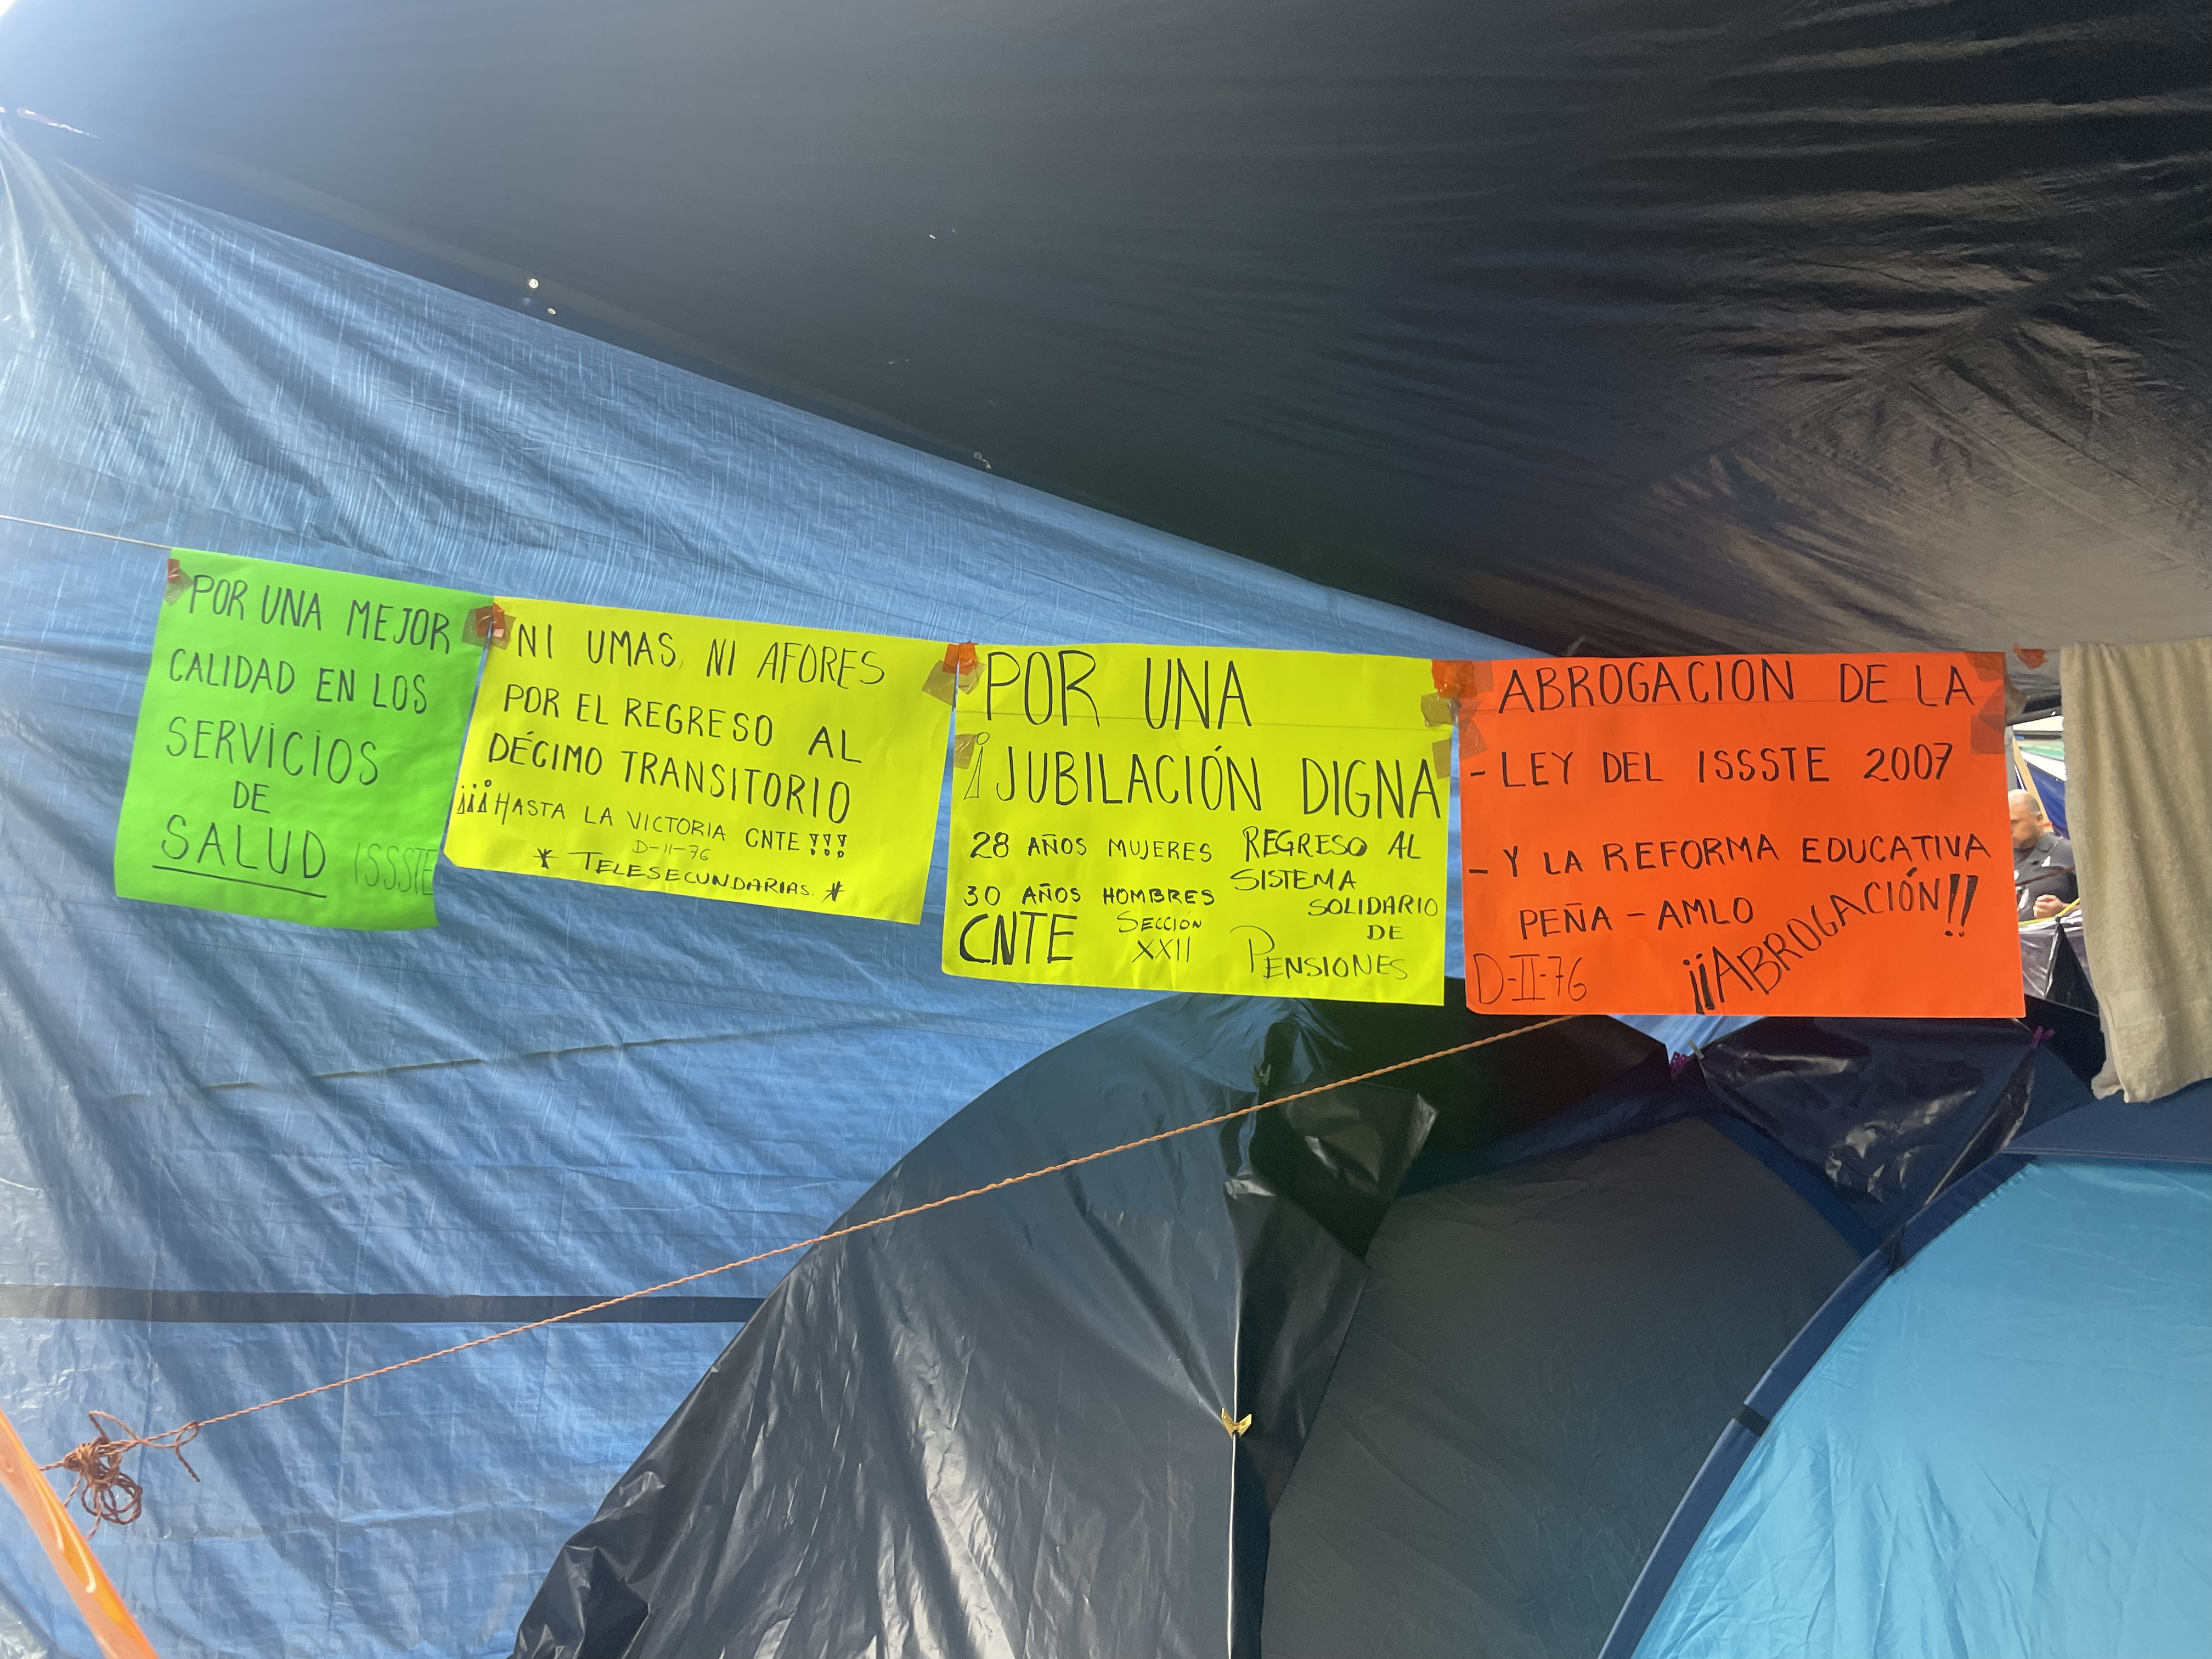 POR UNA MEJOR
CALIDAD EN LOS
SERVICIOS
DE
SALUD ISSSTE
NI UMAS, NI AFORES
POR EL REGRESO AL
DÉCIMO TRANSITORIO
¡¡¡HASTA LA VICTORIA CNTE !!!
D-II-76
* TELESECUNDARIAS. *
POR UNA
¡JUBILACIÓN DIGNA
28 AÑOS MUJERES
30 AÑOS HOMBRES
CNTE SECCIÓN
XXII
REGRESO AL
SISTEMA
SOLIDARIO
DE
PENSIONES
ABROGACION DE LA
- LEY DEL ISSSTE 2007
- Y LA REFORMA EDUCATIVA
PEÑA - AMLO
¡¡ABROGACIÓN!!
D-II-76